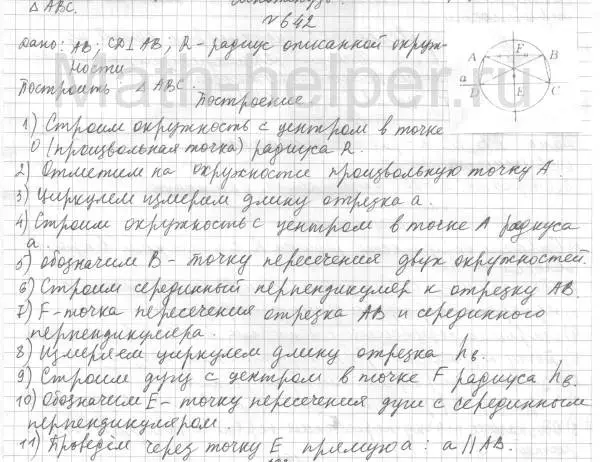 △ ABC.
№642
Дано: AB; CD⊥AB; R - радиус описанной окруж-
ности
Построить: △ ABC.
Построение
1) Строим окружность с центром в точке
O (произвольная точка) радиуса R.
2) Отметим на окружности произвольную точку A.
3) Циркулем измерим длину отрезка a.
4) Строим окружность с центром в точке A радиуса
a.
5) Обозначим B - точку пересечения двух окружностей.
6) Строим серединный перпендикуляр к отрезку AB.
7) F - точка пересечения отрезка AB и серединного
перпендикуляра.
8) Измеряем циркулем длину отрезка hв.
9) Строим дугу с центром в точке F радиуса hв
10) Обозначим E - точку пересечения дуги с серединным
перпендикуляром.
11) Проведём через точку E прямую a : a || AB.
A F B
a D E C
Math-helper.ru